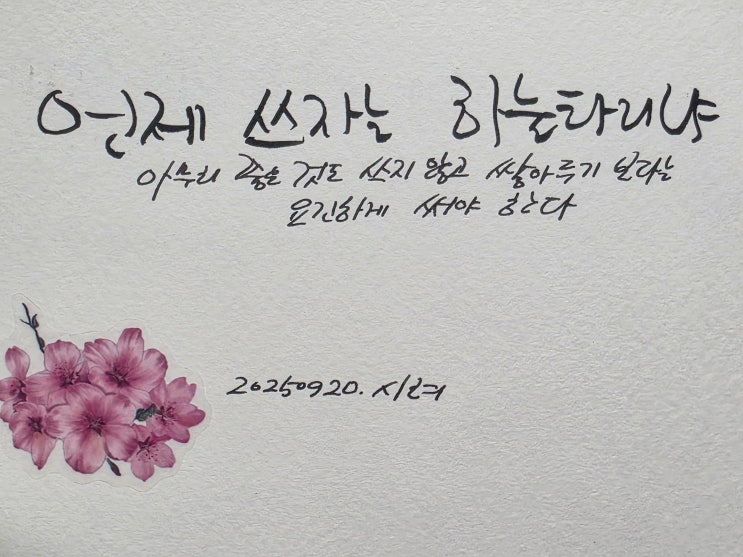 언제 쓰자는 하눌타리냐
아무리 좋은 것도 쓰지 않고 쌓아두기 보다는
요긴하게 써야 한다
20250920.